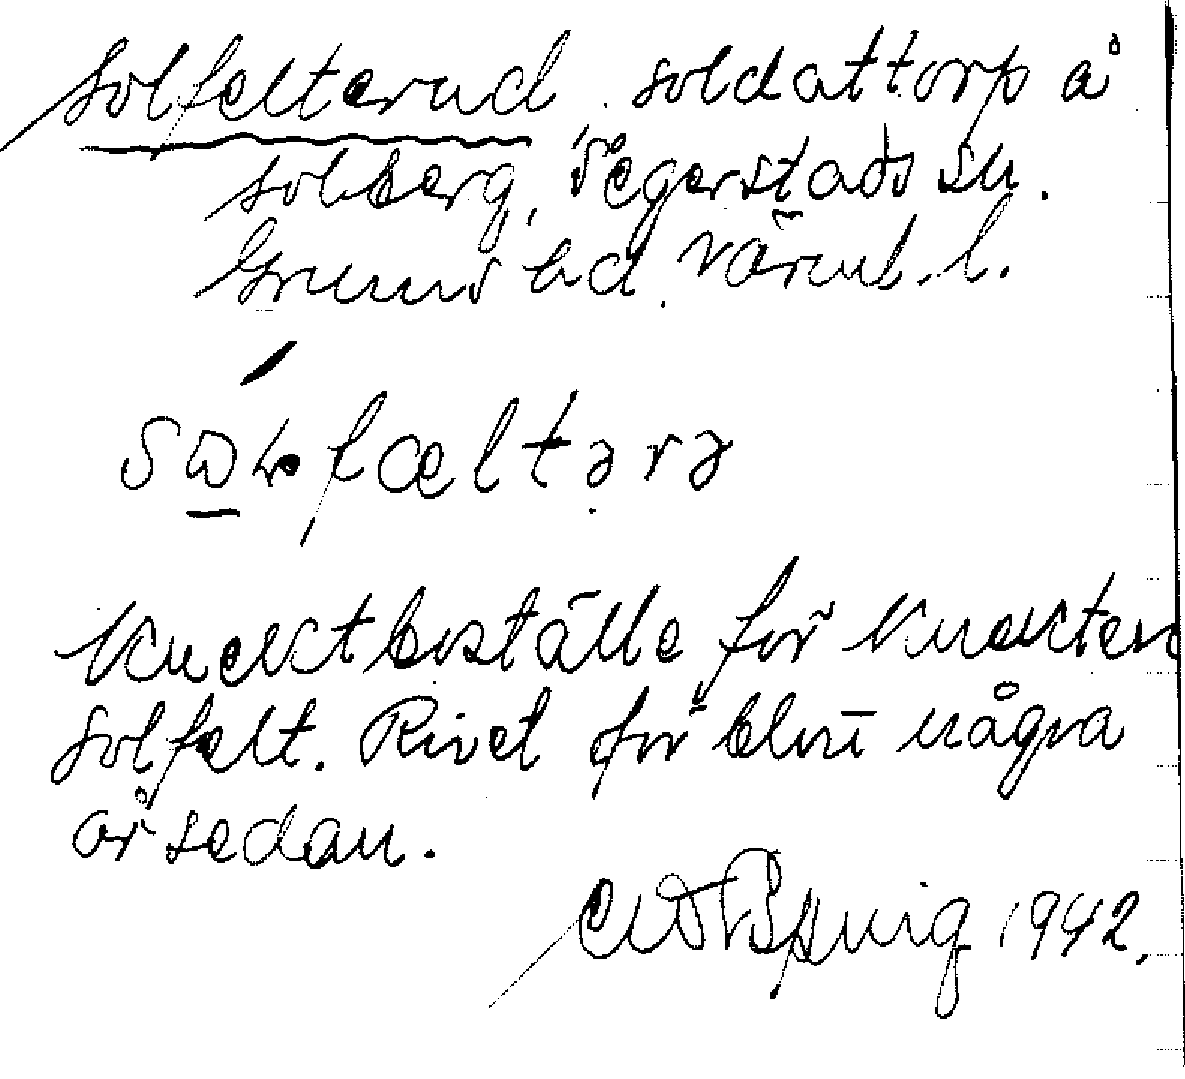 Solfelterud, soldattorp å
Solberg, Segerstads sn.
Grums hd. Värml. l.
fæltərə
Knektboställe för knekten
Solfelt. Rivet för blott några
år sedan.
1942.